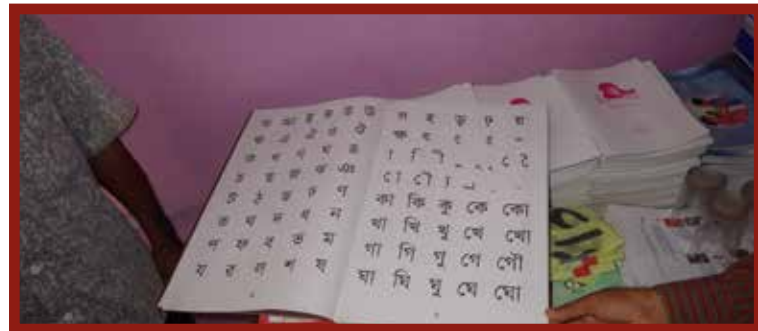 অ আ ই ঈ উ ঊ
ঋ এ ঐ ও ঔ
ক খ গ ঘ ঙ
চ ছ জ ঝ ঞ
ট ঠ ড ঢ ণ
ত থ দ ধ ন
প ফ ব ভ ম
য র ল শ ষ
স হ ড় ঢ় য়
ক্ষ ৎ ং ঃ ঁ
া ি ী ু ূ ৃ ে ৈ
ো ৌ
কা কি কু কে কো
খা খি খু খে খো
গা গি গু গে গৌ
ঘা ঘি ঘু ঘে ঘো